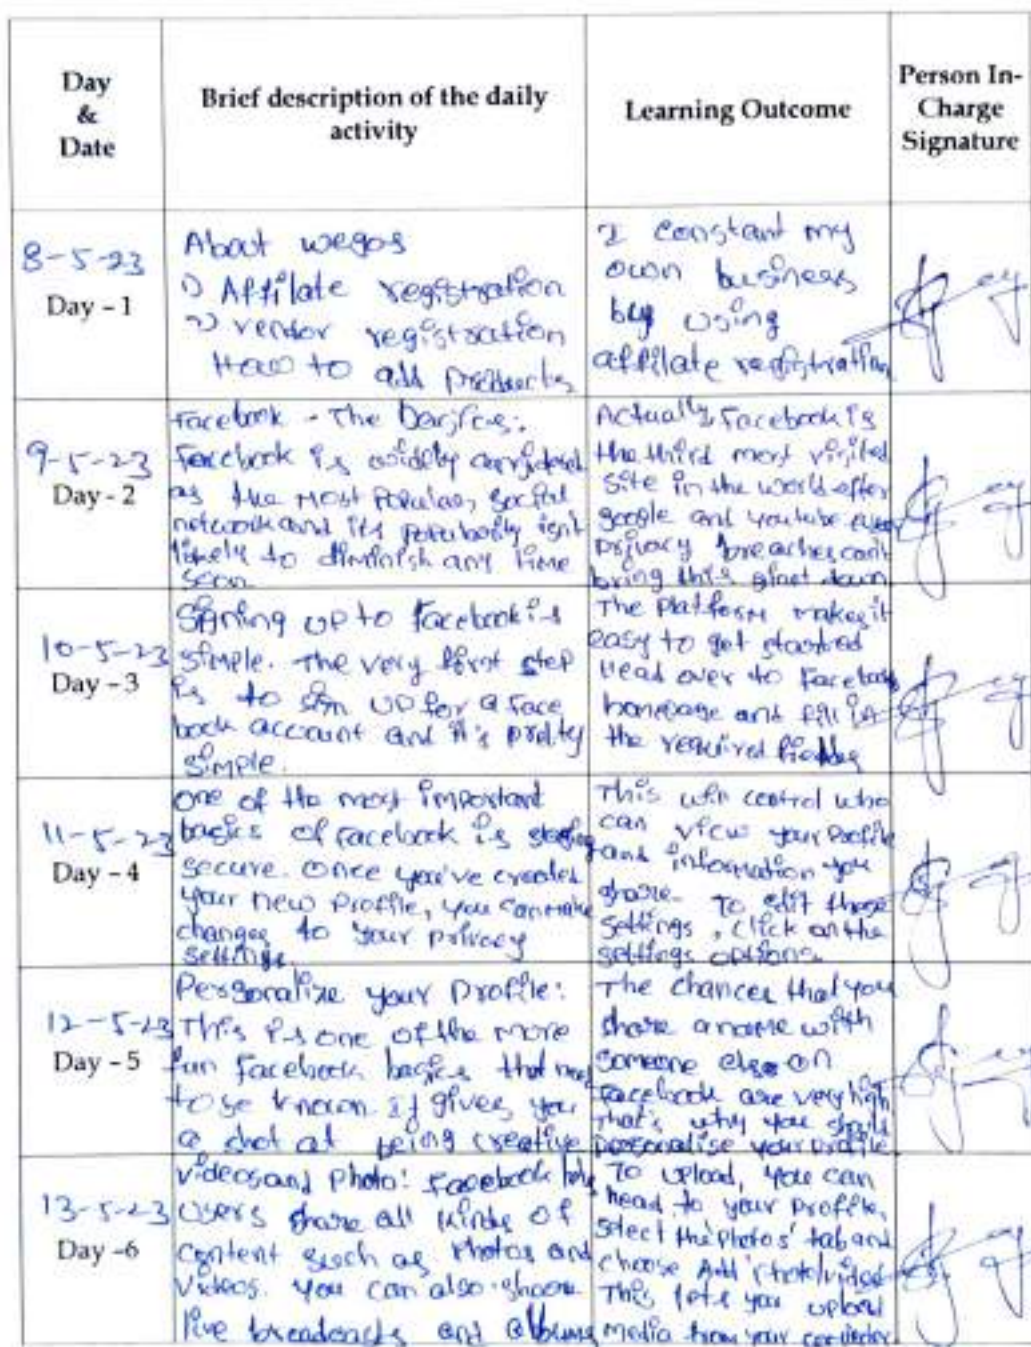 Day
&
Date
Brief description of the daily
activity
Learning Outcome
Person In-
Charge
Signature
8-5-23
Day - 1
About wegos
1) Affilate registration
2) vendor registration
How to add products
I constant my
own business
by using
affilate registration
9-5-23
Day - 2
Facebook - The basics:
Facebook is widely considered
as the most popular, social
network and its popularity isn't
likely to diminish any time
soon
Actually, Facebook is
the third most visited
site in the world after
google and youtube even
privacy breaches can't
bring this giant down
10-5-23
Day - 3
Signing up to Facebook is
simple. The very first step
is to sin up for a Face
book account and it's pretty
simple.
The platform makes it
easy to get started
head over to Facebook
homepage and fill in
the required
11-5-23
Day - 4
one of the most important
basics of Facebook is
secure. once you've created
your new profile, you can make
changes to your privacy
settings.
This will control who
can view your profile
and information you
share. To edit these
settings, click on the
settings options.
12-5-23
Day - 5
Personalize your profile:
This is one of the more
fun Facebook basics that
to be known. It gives you
a shot at being creative
The chances that you
share a name with
someone else on
Facebook are very high
That's why you should
personalise your profile
13-5-23
Day -6
videos and photo: Facebook
users share all kinds of
content such as photos and
videos. you can also share
live broadcasts and albums
To upload, you can
head to your profile,
select the 'photos' tab and
choose Add photo/video
This lets you upload
media from your computer